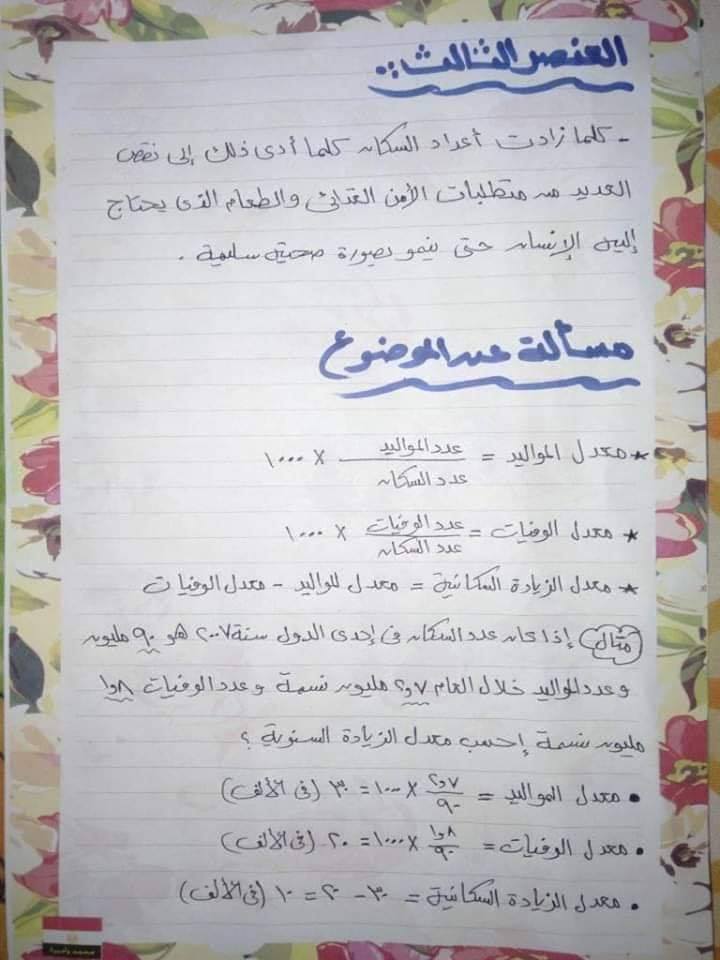 العنصر الثالث :.
- كلما زادت أعداد السكان كلما أدى ذلك إلى نقص
العديد من متطلبات الأمن الغذائى والطعام الذى يحتاج
إليه الإنسان حتى ينمو بصورة صحية سليمة .
مسألة عن الموضوع
* معدل المواليد = عدد المواليد / عدد السكان × ١٠٠٠
* معدل الوفيات = عدد الوفيات / عدد السكان × ١٠٠٠
* معدل الزيادة السكانية = معدل المواليد - معدل الوفيات
مثال إذا كان عدد السكان فى إحدى الدول سنة ٢٠٠٧ هو ٩٠ مليون
وعدد المواليد خلال العام ٢,٧ مليون نسمة وعدد الوفيات ١,٨
مليون نسمة إحسب معدل الزيادة السنوية ؟
• معدل المواليد = ٢,٧ / ٩٠ × ١٠٠٠ = ٣٠ (فى الألف)
• معدل الوفيات = ١,٨ / ٩٠ × ١٠٠٠ = ٢٠ (فى الألف)
• معدل الزيادة السكانية = ٣٠ - ٢٠ = ١٠ (فى الألف)